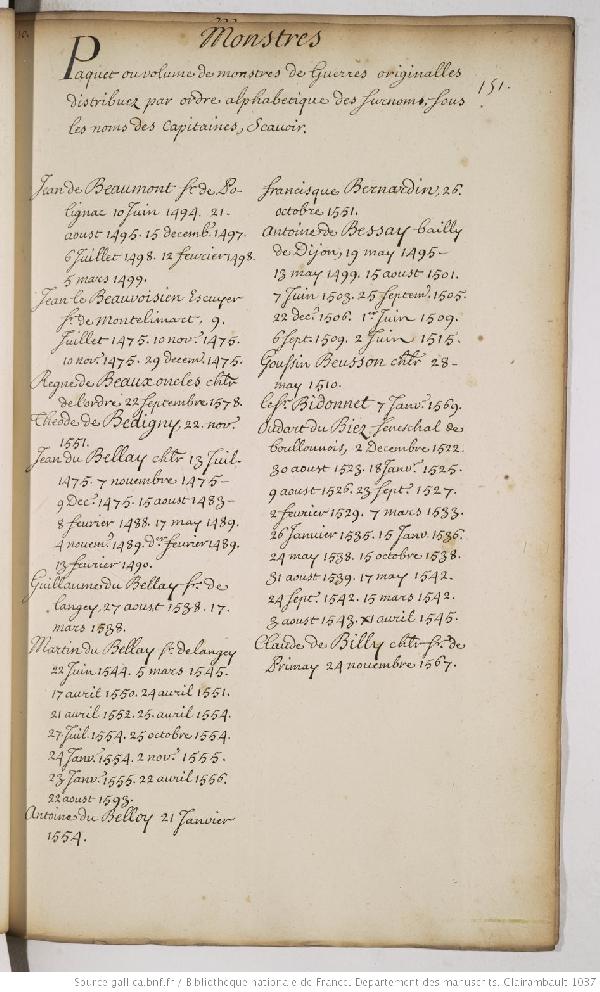 Monstres
Paquet ou volume de monstres de Guerres originalles
distribuez par ordre alphabetique des surnoms, sous
les noms des Capitaines, Scavoir.
151.
Jean de Beaumont sr. de Po-
lignac 10 Juin 1494. 21.
aoust 1495. 15 decemb. 1497.
6 Juillet 1498. 12 fevrier 1498.
5 mars 1499.
Jean le Beauvoisien Escuyer
sr. de Montelimart, 9.
Juillet 1475. 10 novr. 1475.
10 novr. 1475. 29 decem. 1475.
Regne de Beauxoncles chlr
de l'ordre 22 Septembre 1578.
Theode de Bedigny, 22. novr.
1551.
Jean du Bellay chlr 13 Juil.
1475. 7 novembre 1475-
9 Dec. 1475. 15 aoust 1483-
8 fevrier 1488. 17 may 1489.
4 novem. 1489. dr. fevrier 1489.
13 fevrier 1490.
Guillaume du Bellay sr. de
langey, 27 aoust 1538. 17.
mars 1538.
Martin du Bellay sr. de langey
22 Juin 1544. 5 mars 1545.
17 avril 1550. 24 avril 1551.
21 avril 1552. 25. avril 1554.
27 Juil. 1554. 25 octobre 1554.
24 Janv. 1554. 2 nov. 1555.
23 Janv. 1555. 22 avril 1556.
22 aoust 1593.
Antoine du Belloy 21 Janvier
1554.
francisque Bernardin, 26.
octobre 1551.
Antoine de Bessay bailly
de Dijon, 19 may 1495-
13 may 1499. 15 aoust 1501.
7 Juin 1503. 25 Septem. 1505.
22 dec. 1506. 1er Juin 1509.
6 sept. 1509. 2 Juin 1515.
Goussin Beusson chlr 28-
may 1510.
Le sr. Bidonnet 7 Janv. 1569.
Oudart du Biez Seneschal de
boullonnois, 2 Decembre 1522.
30 aoust 1523. 18 Janv. 1525.
9 aoust 1526. 23 Sept. 1527.
2 fevrier 1529. 7 mars 1533.
26 Janvier 1535. 15 Janv. 1536.
24 may 1538. 15 octobre 1538.
31 aoust 1539. 17 may 1542-
24 Sept. 1542. 15 mars 1542.
3 aoust 1543. XI avril 1545.
Claude de Billy chlr sr. de
Primay 24 novembre 1567.
Source gallica.bnf.fr / Bibliothèque nationale de France. Département des manuscrits. Clairambault 1087